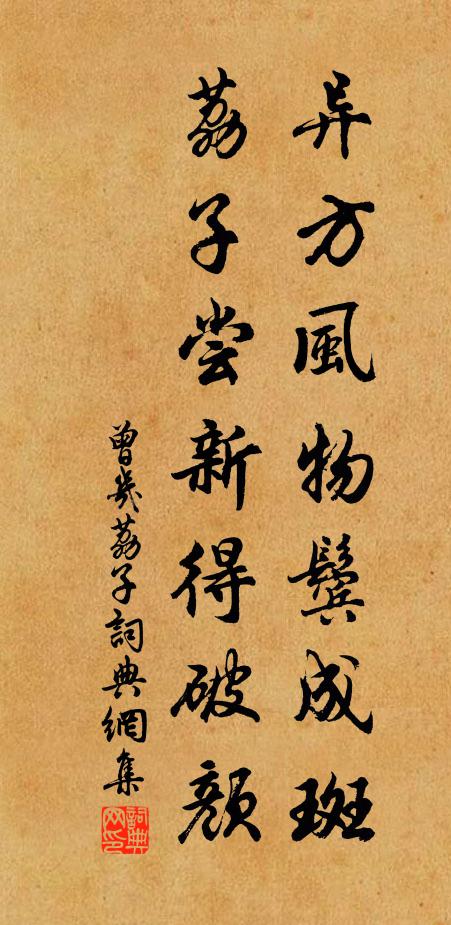 异方風物鬓成斑
荔子尝新得破颜
曾幾荔子詞典網集
詞典網印